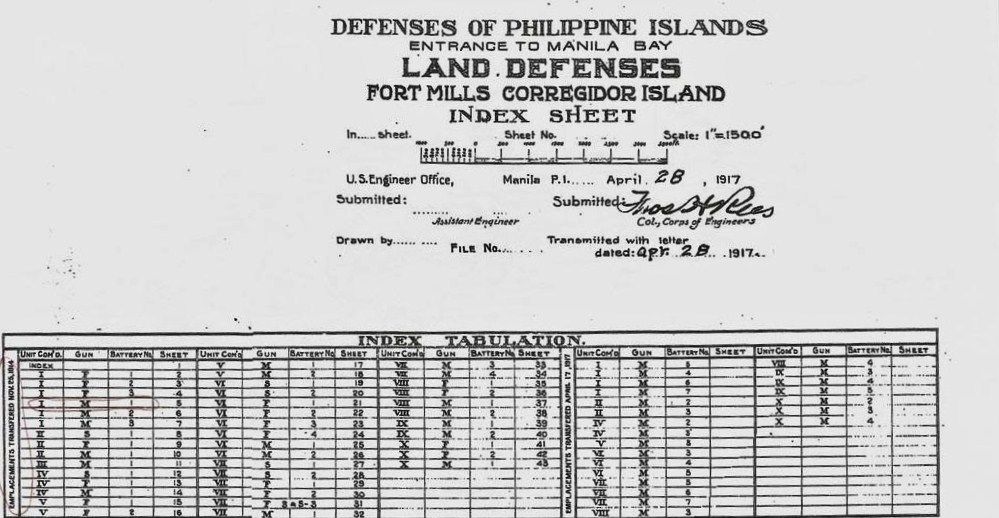 DEFENSES OF PHILIPPINE ISLANDS
ENTRANCE TO MANILA BAY
LAND DEFENSES
FORT MILLS CORREGIDOR ISLAND
INDEX SHEET
In..... sheet. Sheet No. Scale: 1"=1500'
1000 500 0 500 1000 1500 2000 2500 3000 3500 ft
U.S. Engineer Office, Manila P.I...... April 28, 1917
Submitted: Submitted: Thos H Rees
Assistant Engineer Col., Corps of Engineers
Drawn by...... .... FILE No....... Transmitted with letter
dated: Apr. 28. 1917.
INDEX TABULATION.
EMPLACEMENTS TRANSFERED NOV. 25, 1914
EMPLACEMENTS TRANSFERED APRIL 17, 1917
UNIT COM'D. GUN BATTERY No. SHEET UNIT COM'D GUN BATTERY No. SHEET UNIT COM'D GUN BATTERY No. SHEET UNIT COM'D. GUN BATTERY No. SHEET UNIT COM'D GUN BATTERY No. SHEET
INDEX 1 V M 1 17 VII M 3 33 I M VIII M 4
I F 1 2 V M 2 18 VII M 4 34 I M IX M 3
I F 2 3 VI S 19 VIII F 1 35 I M 6 IX M 4
I F 3 4 VI S 2 20 VIII F 2 36 I M 7 IX M 5
I M 5 VI F 1 21 VIII M 1 37 II M 2 X M 2
I M 2 6 VI F 2 22 VIII M 2 38 II M 3 X M 3
I M 3 7 VI F 3 23 IX M 1 39 IV M 2 X M 4
II S 1 8 VI F 4 24 IX M 2 40 IV M 3
II F 1 9 VI M 1 25 X F 1 41 V M 3
II M 1 10 VI M 2 26 X F 2 42 VI M 3
III M 1 11 VII S 27 X M 1 43 VI M 4
IV S 12 VII S 2 28 VI M 5
IV F 1 13 VII F 1 29 VII M 5
IV M 14 VII F 2 30 VII M 6
V F 15 VII F 3 & S-3 31 VII M 7
V F 2 16 VII M 1 32 VIII M 3